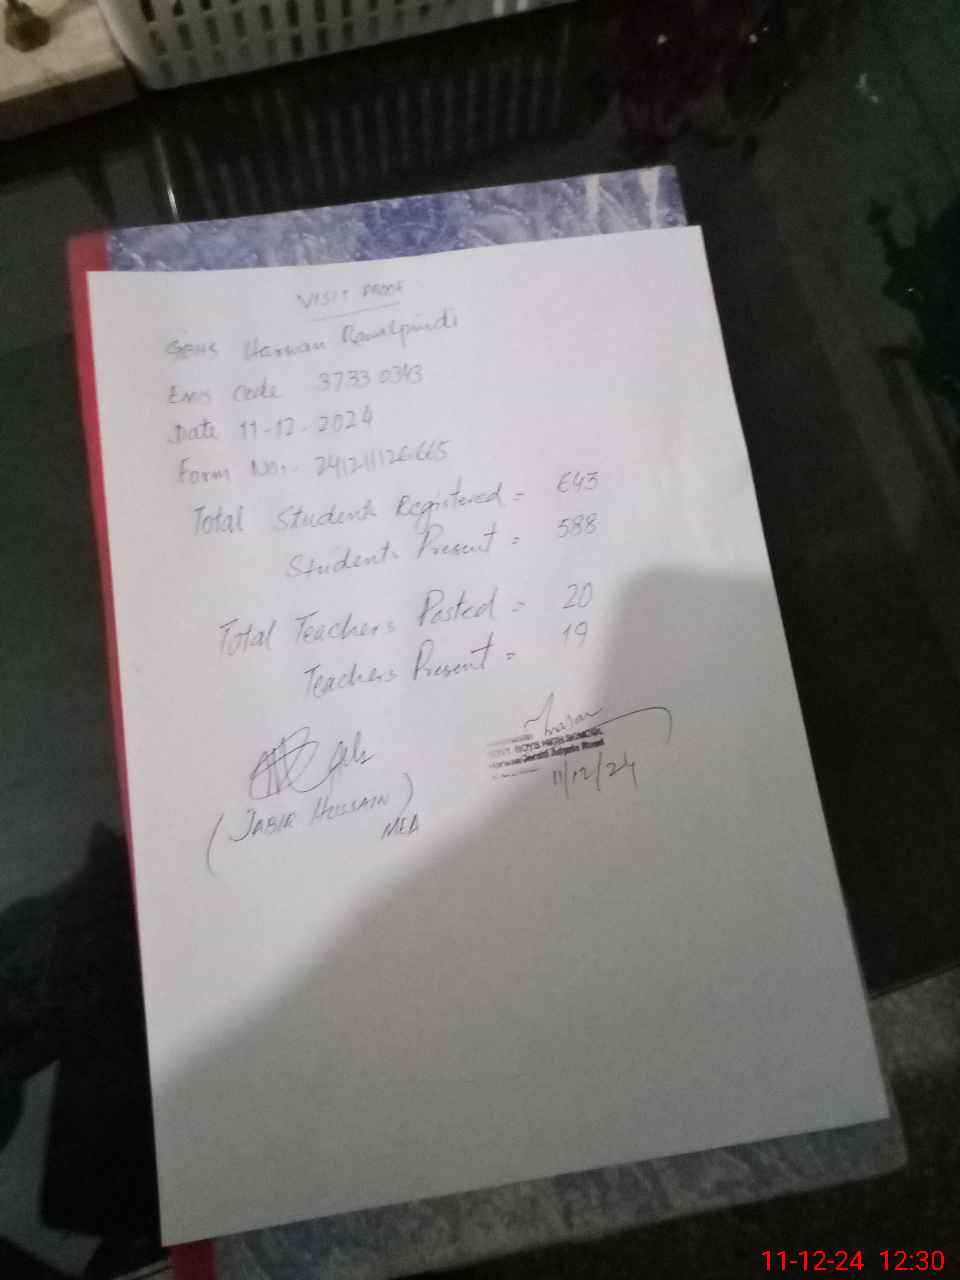 VISIT PROOF
GBHS Harwan Rawalpindi
EMIS Code 37330343
Date 11-12-2024
Form No:- 241211126665
Total Students Registered = 643
Students Present = 588
Total Teachers Posted = 20
Teachers Present = 19
GOVT. BOYS HIGH SCHOOL
Road
11/12/24
(JABIR HUSSAIN)
MEA
11-12-24 12:30